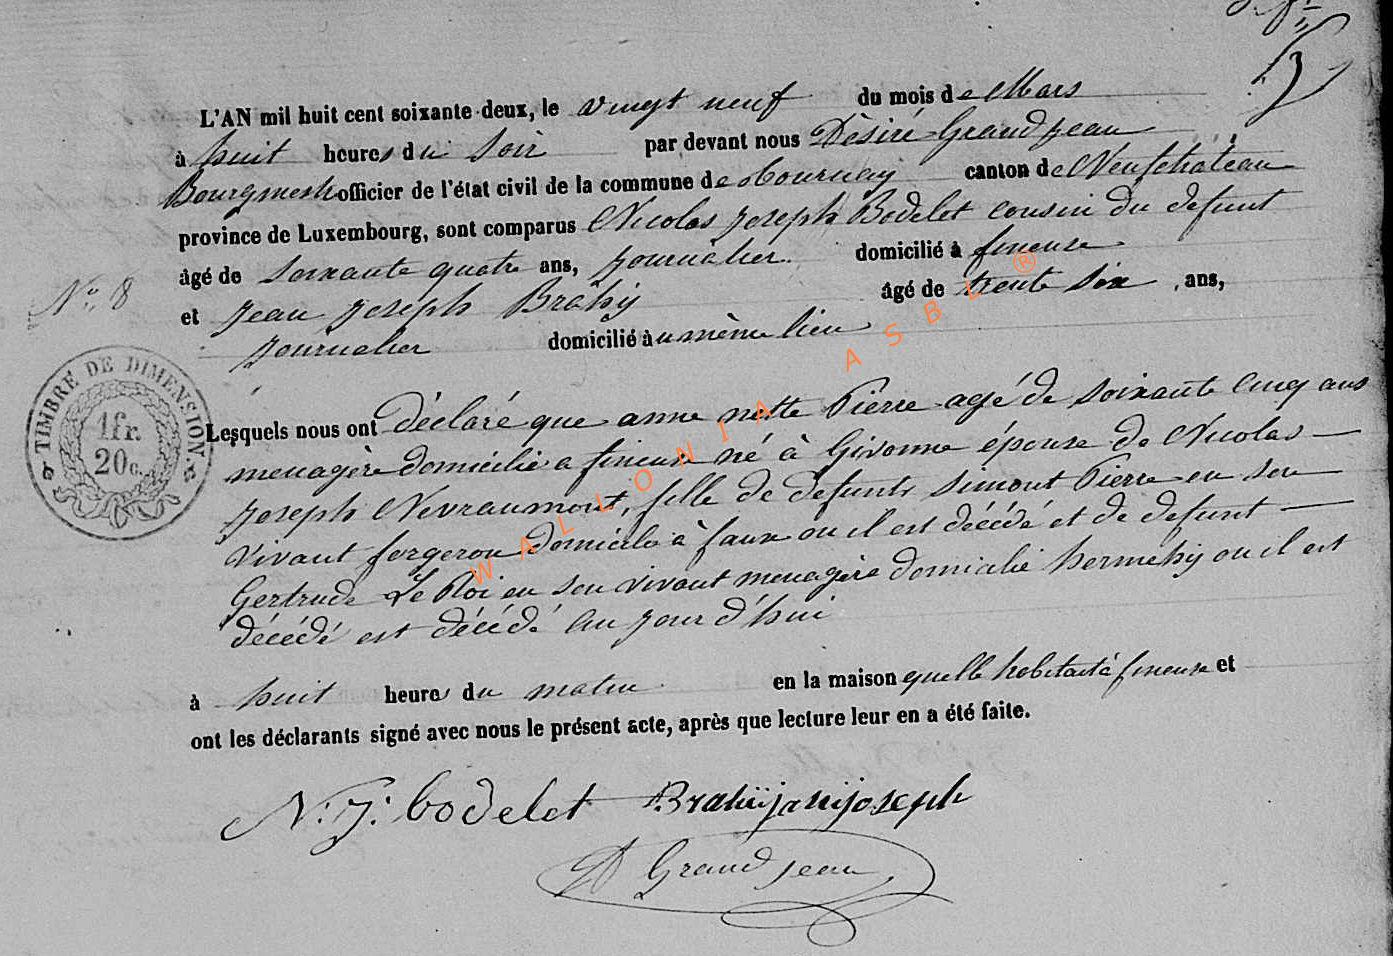 L'AN mil huit cent soixante-deux, le vingt neuf du mois de Mars
à huit heures du soir par devant nous Désiré Grand jean
Bourgmestre officier de l'état civil de la commune de Tournay canton de Neufchâteau
province de Luxembourg, sont comparus Nicolas joseph Bodelet cousin du defunt
âgé de soixante quatre ans, journalier domicilié à fineuse
N° 8
et jean joseph Brahy âgé de trente six ans,
journalier domicilié à u même lieu
TIMBRE DE DIMENSION
1 fr.
20 c.
Lesquels nous ont déclaré que anne nette Pierre agé de soixante cinq ans
menagère domicilié a fineuse né à Givonne épouse de Nicolas
joseph Nevraumont, fille de defunts simont Pierre en son
vivant forgeron domicile à faux ou il est décédé et de defunt
Gertrude Le Roi en son vivant menagère domicilié hermehy ou il est
décédé est décédé au jour d'hui
à huit heures du matin en la maison quelle habitait à fineuse et
ont les déclarants signé avec nous le présent acte, après que lecture leur en a été faite.
N: j: bodelet Brahÿ jan joseph
D Grand jean
WALLONIA ASBL ®